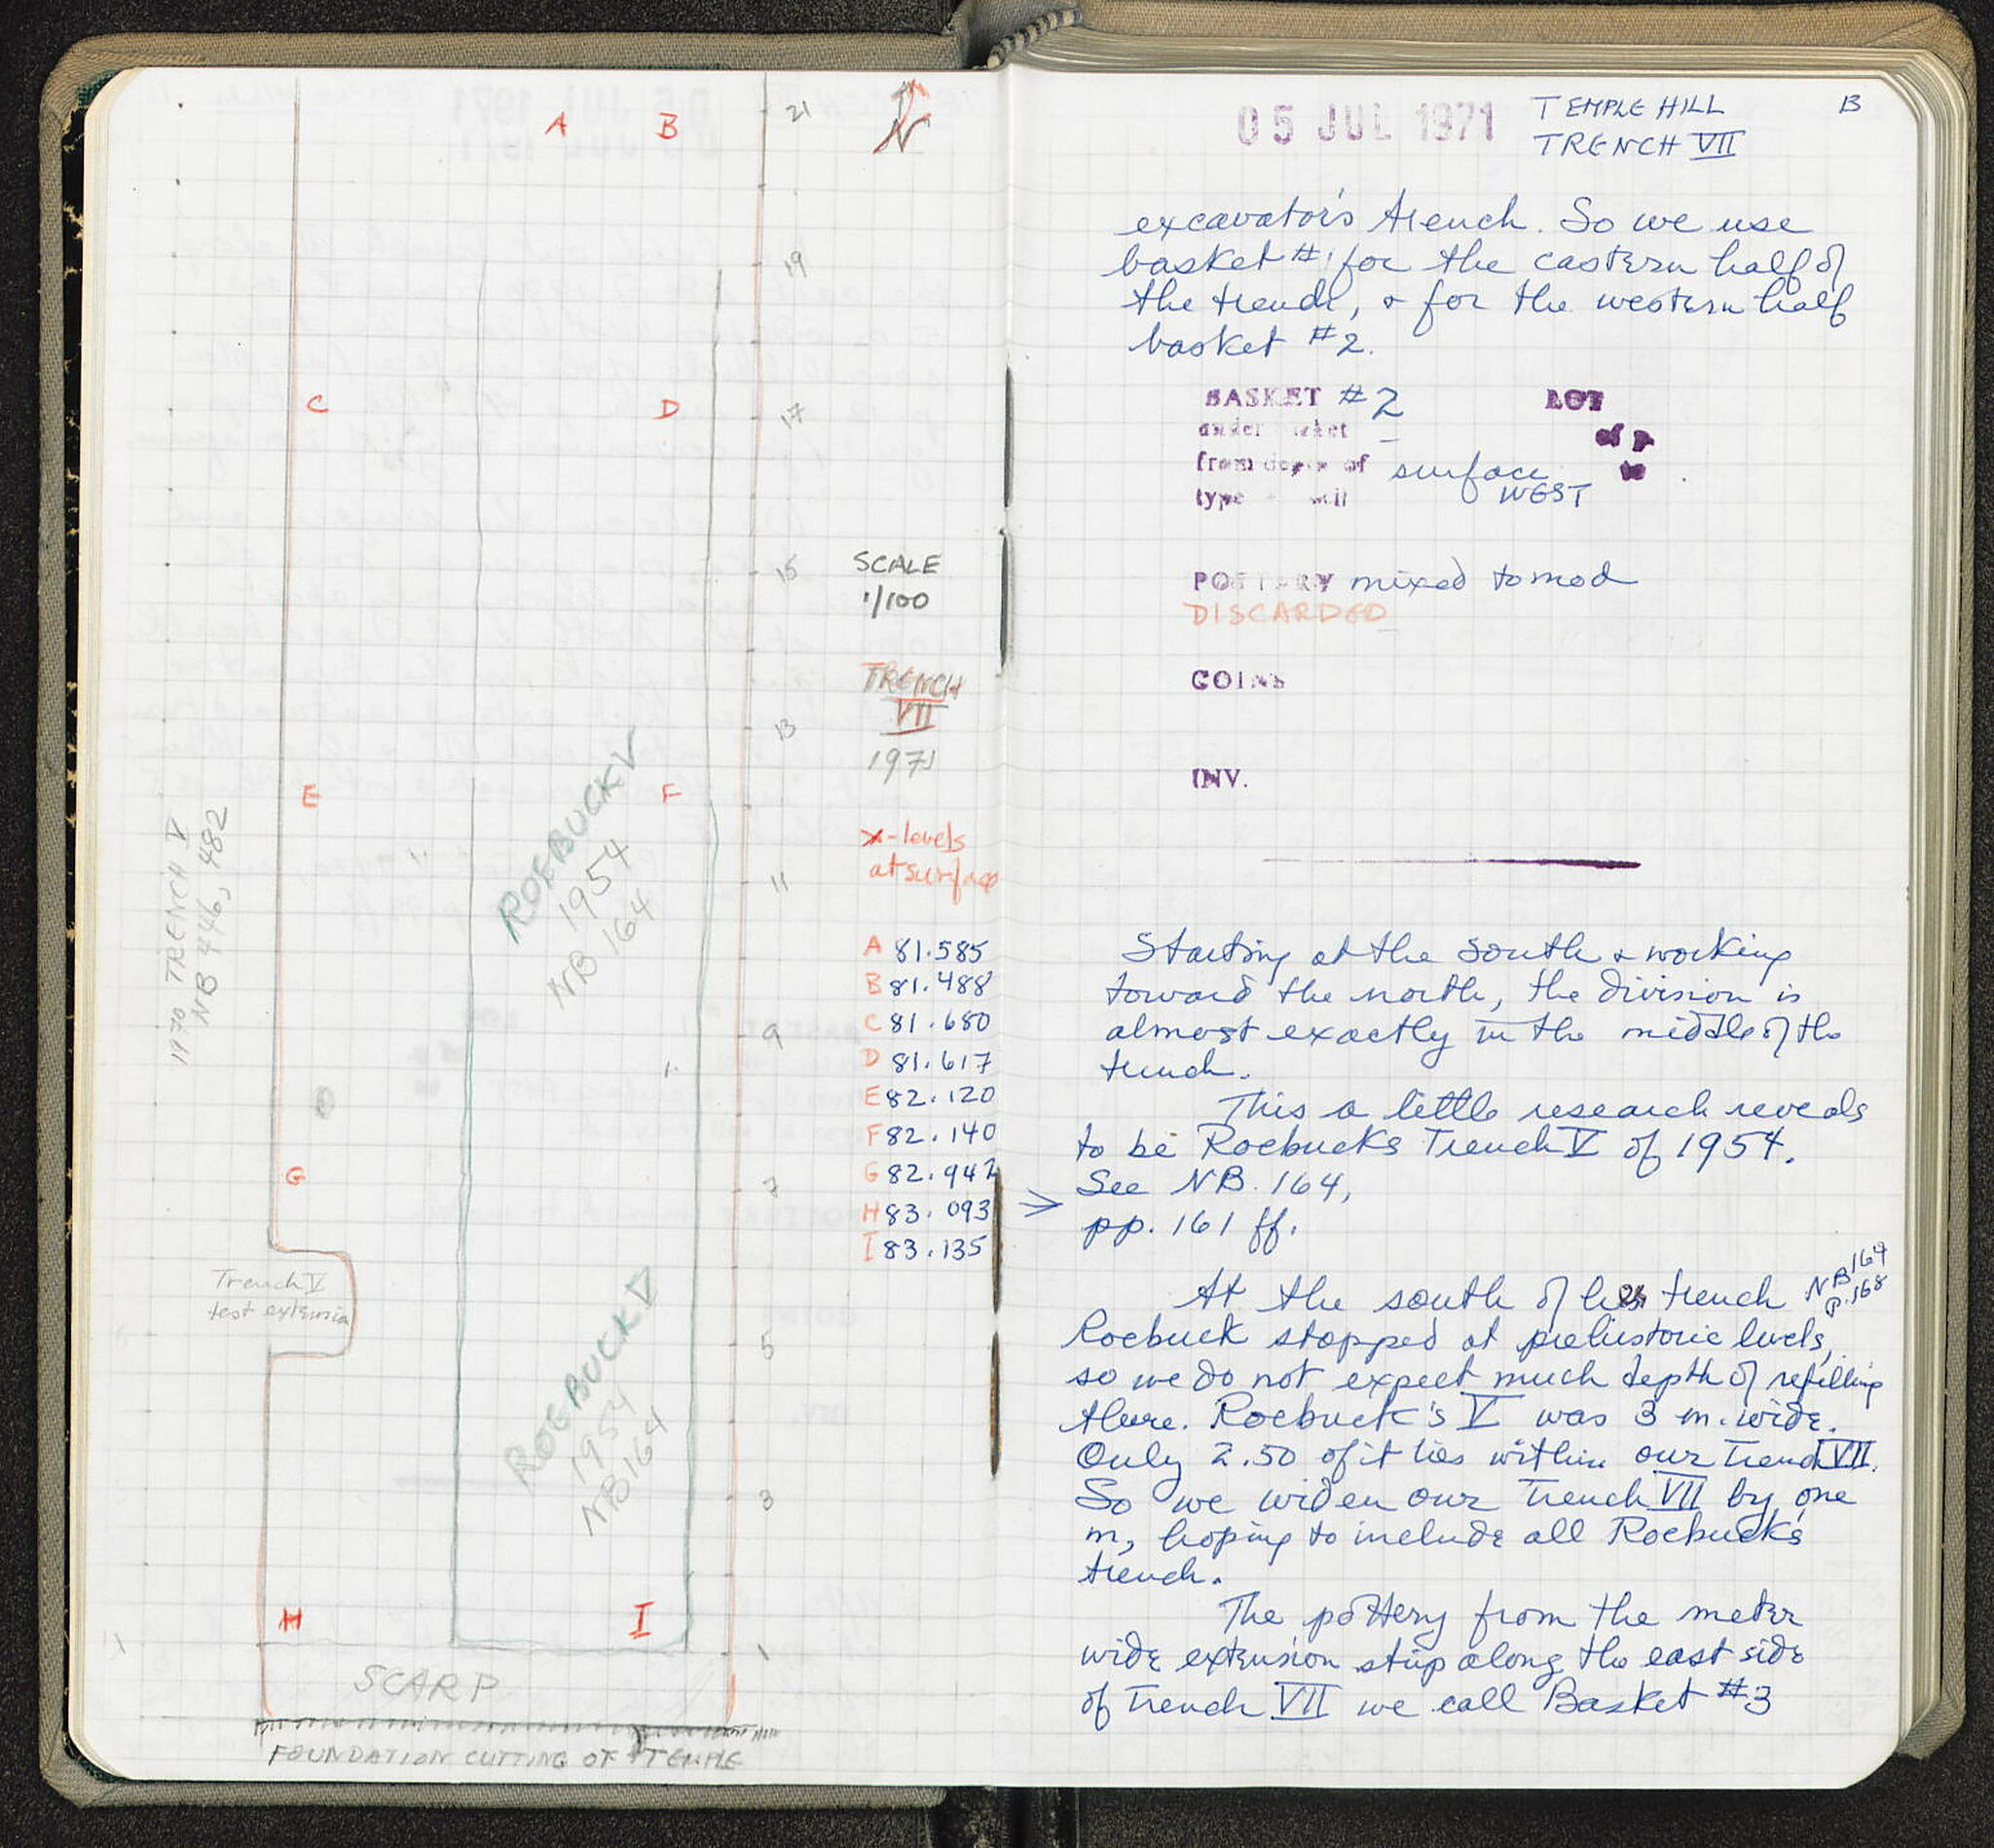 A B
21
N
19
C D
17
15
SCALE
1/100
TRENCH
VII
1971
13
E F
x-levels
at surface
11
ROEBUCK V
1954
NB 164
1970 TRENCH V
NB 446, 482
A 81.585
B 81.488
C 81.680
D 81.617
E 82.120
F 82.140
G 82.942
H 83.093
I 83.135
9
G
7
Trench V
test extension
5
ROEBUCK V
1954
NB 164
3
H I
1 1
SCARP
FOUNDATION CUTTING OF TEMPLE
05 JUL 1971
TEMPLE HILL
TRENCH VII
13
excavator's trench. So we use
basket #1 for the eastern half of
the trench, & for the western half
basket #2.
BASKET #2 LOT
under basket –
from depth of surface
type soil WEST
POTTERY mixed to mod
DISCARDED
COINS
INV.
Starting at the south & working
toward the north, the division is
almost exactly in the middle of the
trench.
This a little research reveals
to be Roebucks Trench V of 1954.
See NB. 164,
pp. 161 ff.
At the south of his trench NB 164
p. 168
Roebuck stopped at prehistoric levels,
so we do not expect much depth of refilling
there. Roebuck's V was 3 m. wide.
Only 2.50 of it lies within our trench VII.
So we widen our trench VII by one
m, hoping to include all Roebucks
trench.
The pottery from the meter
wide extension strip along the east side
of trench VII we call Basket #3